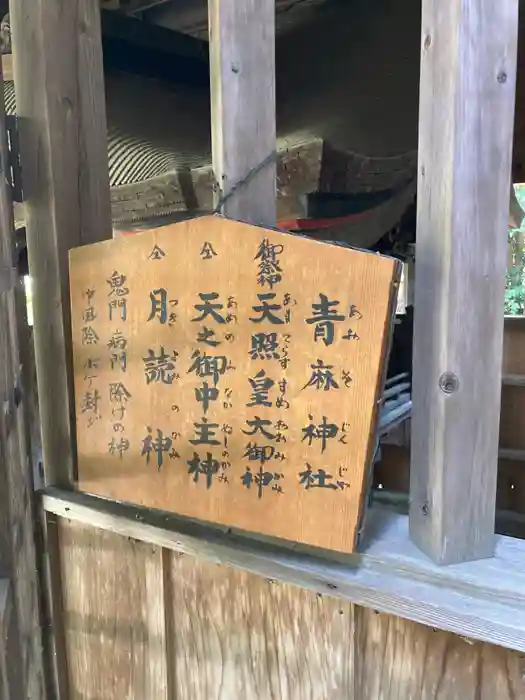 青麻神社
あおそじんじゃ
御祭神 天照皇大御神
あまてらすすめおおみかみ
仝 天之御中主神
あめのみなかぬしのかみ
仝 月読神
つきよみのかみ
鬼門 病門 除けの神